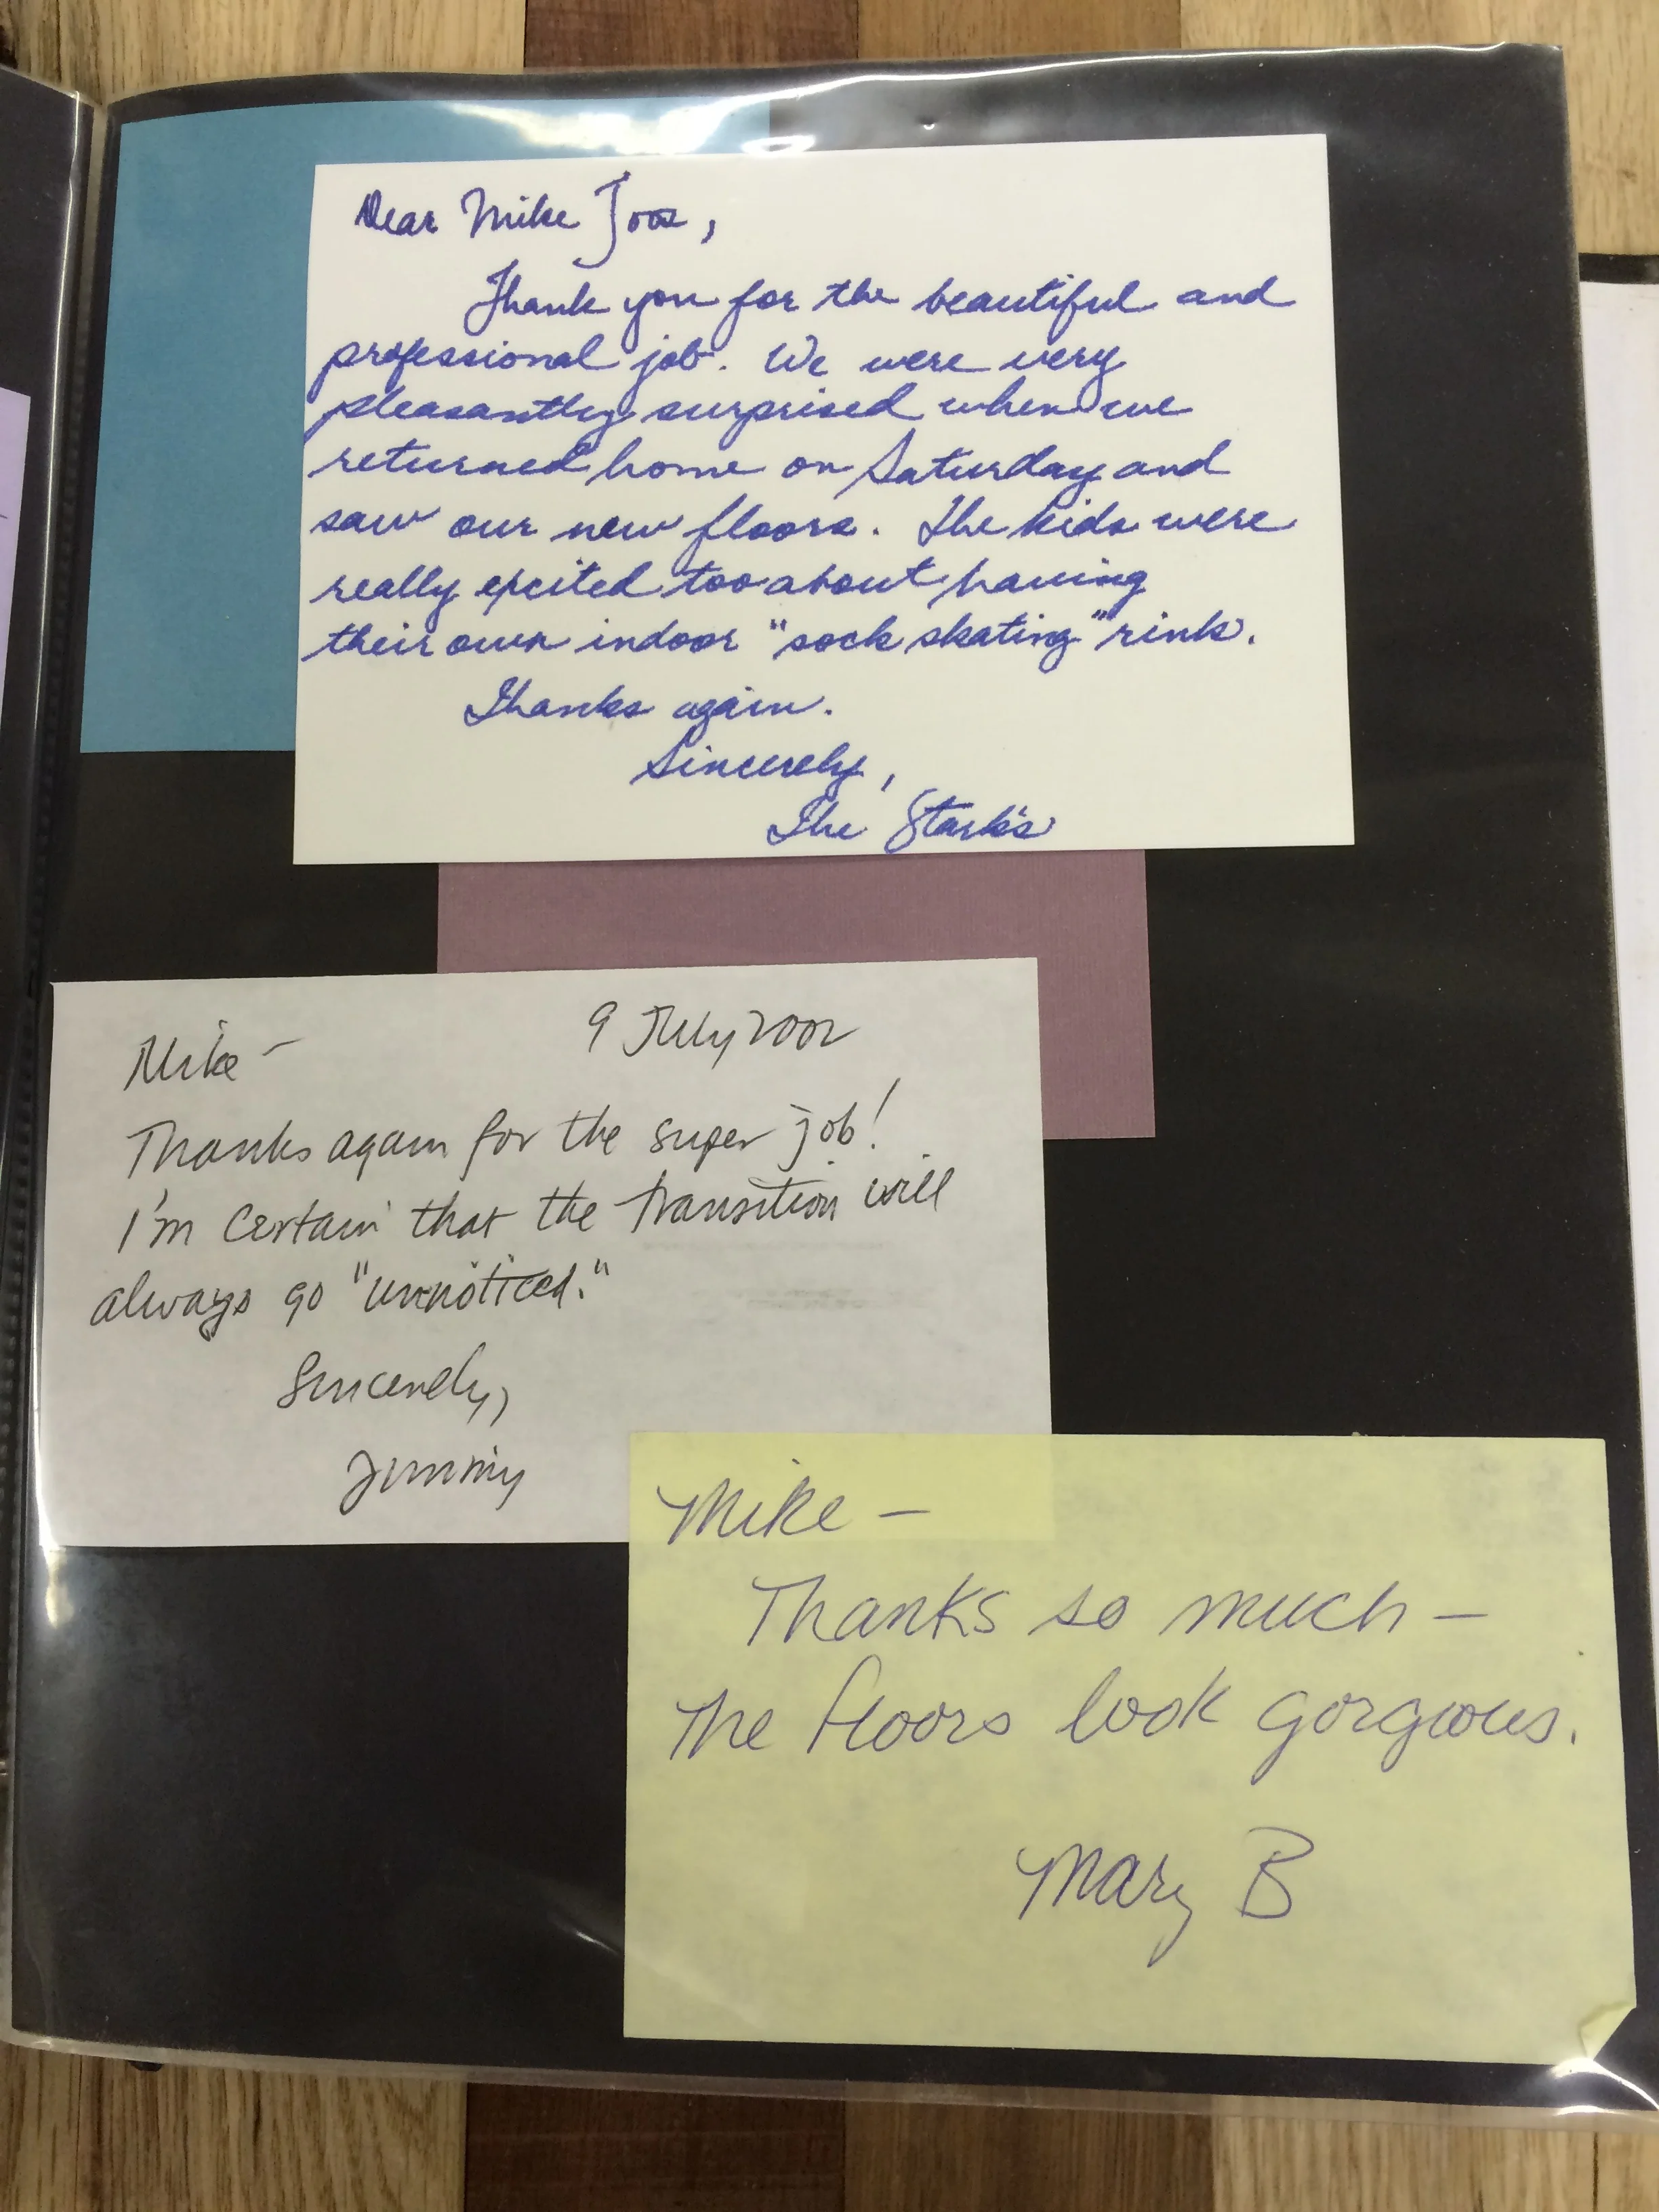 Dear Mike Joos,
Thank you for the beautiful and
professional job. We were very
pleasantly surprised when we
returned home on Saturday and
saw our new floors. The kids were
really excited too about having
their own indoor "sock skating" rink.
Thanks again.
Sincerely,
The Stark's
Mike – 9 July 2002
Thanks again for the super job!
I'm certain that the transition will
always go "unnoticed."
Sincerely,
Jimmy
Mike –
Thanks so much –
The floors look gorgeous.
Mary B